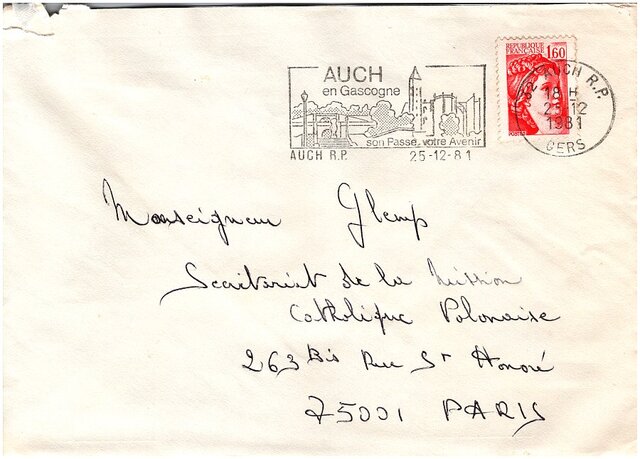 AUCH
en Gascogne
son Passé, votre Avenir
AUCH R.P. 25-12-81
REPUBLIQUE FRANÇAISE 1,60
POSTES
AUCH R.P.
18 H
25-12
1981
GERS
Monseigneur Glemp
Secritariat de la Mission
Catholique Polonaise
263 Bis Rue St Honoré
75001 PARIS